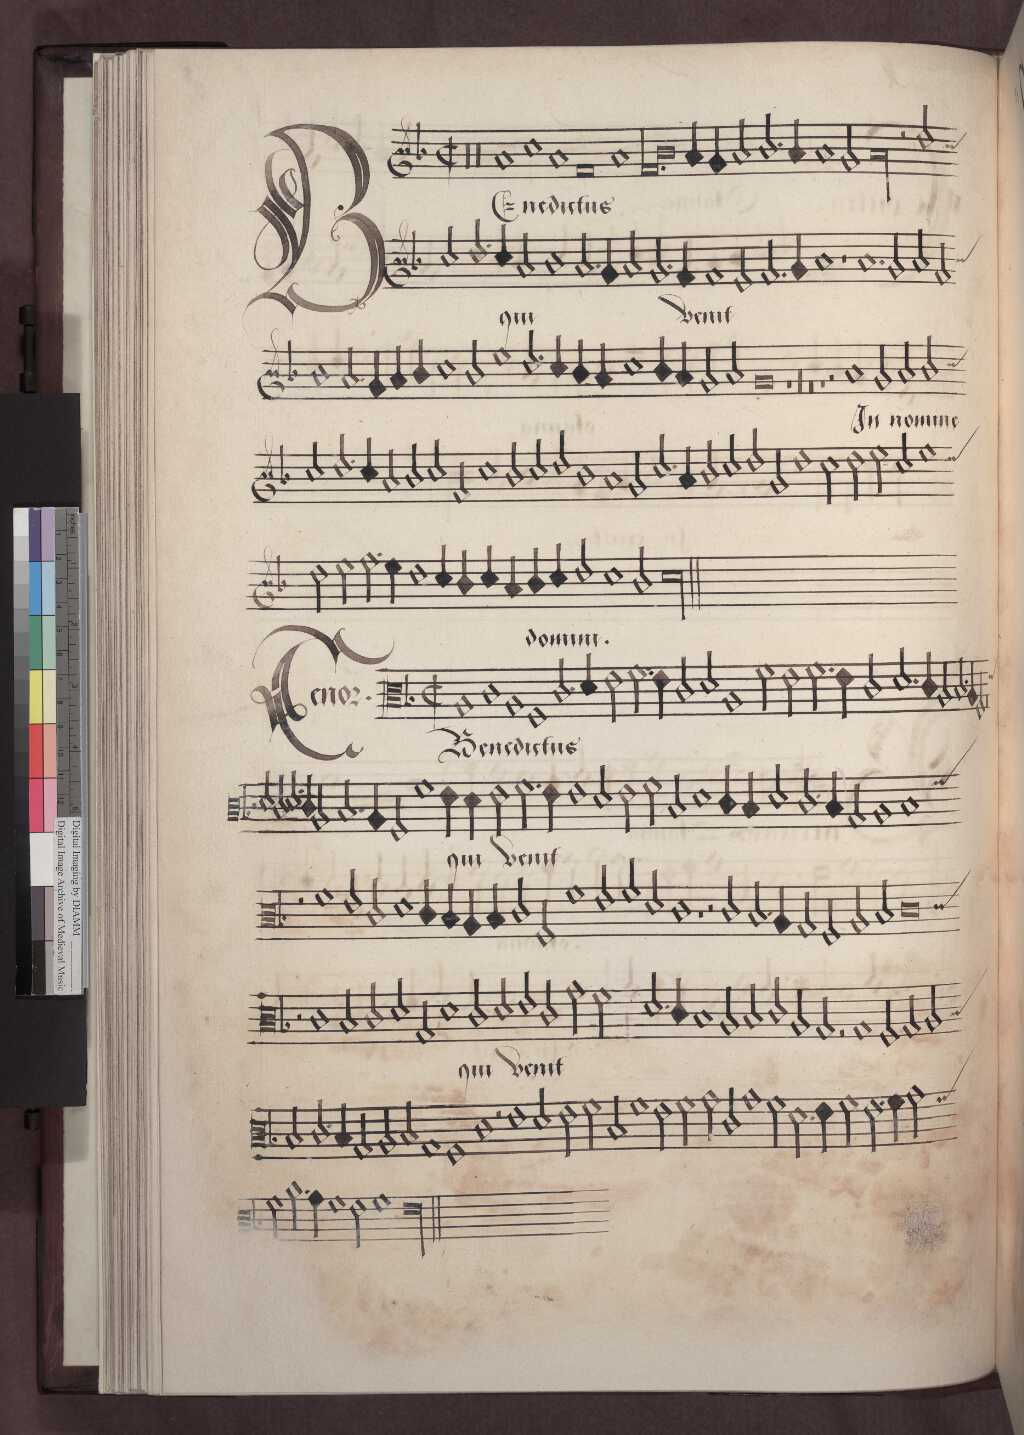 BEnedictus
qui venit
In nomine
domini.
Tenor.
Benedictus
qui venit
qui venit
Digital Imaging by DIAMM
Digital Image Archive of Medieval Music